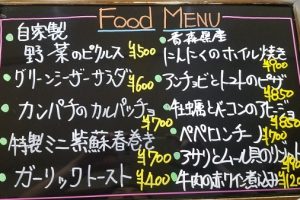 FOOD MENU
自家製
野菜のピクルス ¥500
グリーンシーザーサラダ ¥600
カンパチのカルパッチョ ¥700
特製ミニ紫蘇春巻き ¥700
ガーリックトースト ¥400
青森県産
にんにくのホイル焼き ¥400
アンチョビとトマトのピザ ¥850
牡蠣とベーコンのアヒージョ ¥850
ペペロンチーノ ¥700
アサリとムール貝のリゾット
牛肉の赤ワイン煮込み